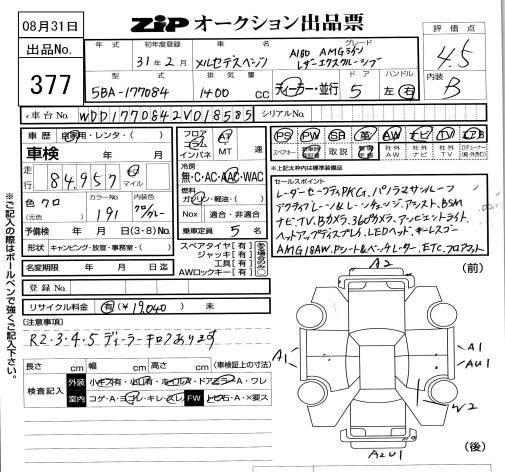 08月31日
ZIP オークション出品票
出品No.
377
年式
初年度登録
31年2月
車名
メルセデスベンツ
グレード
A180 AMGライン
レザーエクスクルーシブ
型式
5BA-177084
排気量
1400 CC
ディーラー・並行
ドア
5
ハンドル
左 右
評価点
4.5
内装
B
車台No.
WDD1770842V018585
シリアルNo.
車歴 自家用・レンタ・( )
車検 年 月
走行 84,957 キロ マイル
色 クロ
(元色)
カラーNo.
191
内装色
クロ/グレー
予備検 年 月 日 (3・8) No.
形状 キャンピング・放宣・事務室・( )
名変期限 年 月 日迄
フロア コラム インパネ
AT MT 速
冷房
無・C・AC・AAC・WAC
燃料
ガソリン・軽油・( )
Nox 適合・非適合
乗車定員 5 名
スペアタイヤ[有]
ジャッキ[有]
工具[有]
AWロックキー[有]
PS PW SR 革 AW ナビ TV エアB
スペアキー
取説
社外AW 社外ナビ 社外TV
※上記太枠内は標準装備品
セールスポイント
レーダーセーフティPKG、パノラマサンルーフ
アクティブレーン&レーンチェンジ、アシスト、BSM
ナビ、TV、Bカメラ、360°カメラ、アンビエントライト
ヘッドアップディスプレイ、LEDヘッド、キーレスゴー
AMG18AW、Pシート&ベンチレーター、ETC、フロアマット
リサイクル料金 有 (¥19,040) 未
[注意事項]
R2・3・4・5 ディーラーキロクあります
長さ cm 幅 cm 高さ cm (車検証上の寸法)
検査記入
外装 小キズ有・小凹有・ホイルA・ドアミラーA・ワレ
室内 コゲ・A・ヨゴレ・キレ・スレ FW トビ石・A・×要ス
※ご記入の際はボールペンで強くご記入下さい。
A2
(前)
A1
A1
AU1
W2
A2U1
(後)